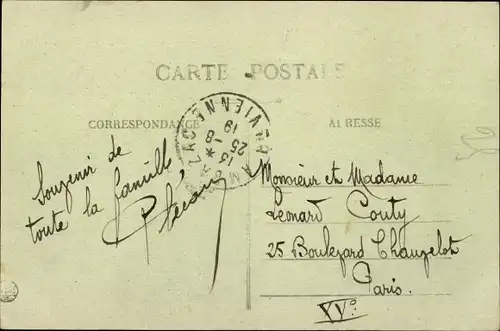 CARTE POSTALE
CORRESPONDANCE
ADRESSE
VIENNE
13 - 8
25
19
Souvenir de
toute la famille
Monsieur et Madame
Leonard Couty
25 Boulevard Chauvelot
Paris.
XVe